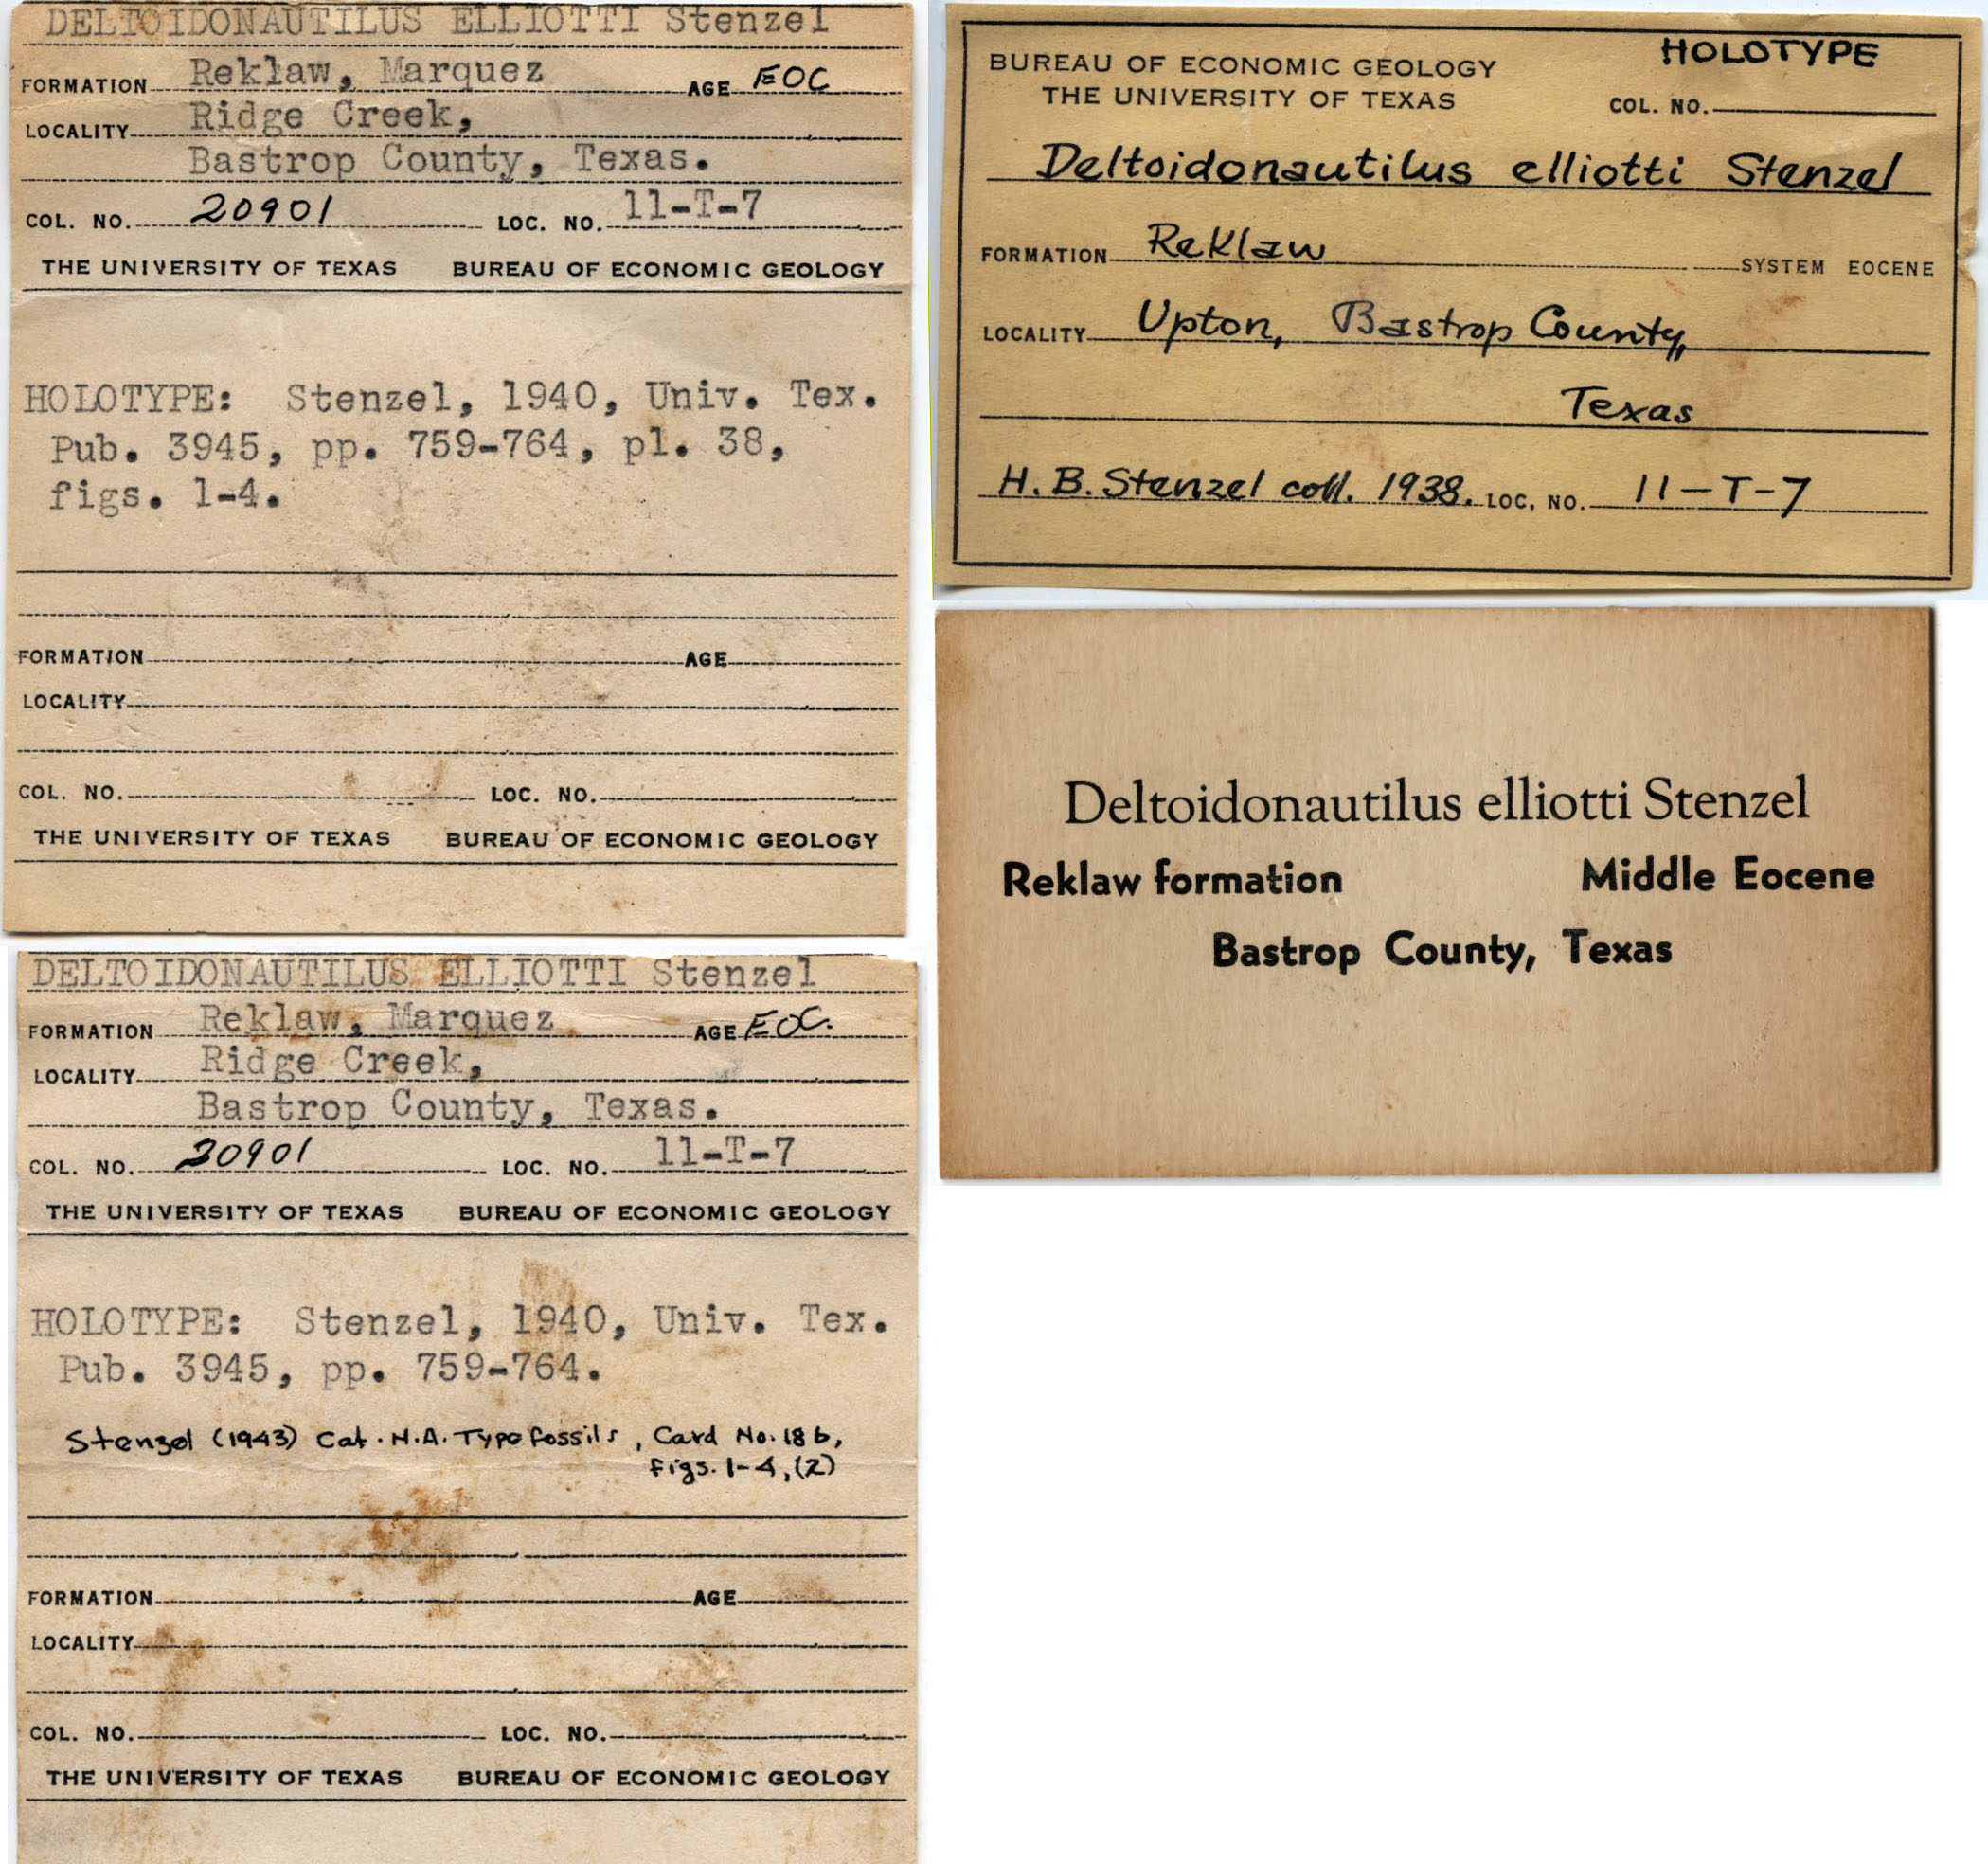 DELTOIDONAUTILUS ELLIOTTI Stenzel
FORMATION Reklaw, Marquez AGE EOC
LOCALITY Ridge Creek,
Bastrop County, Texas.
COL. NO. 20901 LOC. NO. 11-T-7
THE UNIVERSITY OF TEXAS BUREAU OF ECONOMIC GEOLOGY
HOLOTYPE: Stenzel, 1940, Univ. Tex.
Pub. 3945, pp. 759-764, pl. 38,
figs. 1-4.
FORMATION AGE
LOCALITY
COL. NO. LOC. NO.
THE UNIVERSITY OF TEXAS BUREAU OF ECONOMIC GEOLOGY
DELTOIDONAUTILUS ELLIOTTI Stenzel
FORMATION Reklaw, Marquez AGE EOC.
LOCALITY Ridge Creek,
Bastrop County, Texas.
COL. NO. 20901 LOC. NO. 11-T-7
THE UNIVERSITY OF TEXAS BUREAU OF ECONOMIC GEOLOGY
HOLOTYPE: Stenzel, 1940, Univ. Tex.
Pub. 3945, pp. 759-764.
Stenzel (1943) Cat. N.A. Type fossils, Card No. 18 b,
Figs. 1-4, (2)
FORMATION AGE
LOCALITY
COL. NO. LOC. NO.
THE UNIVERSITY OF TEXAS BUREAU OF ECONOMIC GEOLOGY
HOLOTYPE
BUREAU OF ECONOMIC GEOLOGY
THE UNIVERSITY OF TEXAS COL. NO.
Deltoidonautilus elliotti Stenzel
FORMATION Reklaw SYSTEM EOCENE
LOCALITY Upton, Bastrop County,
Texas
H. B. Stenzel coll. 1938. LOC. NO. 11-T-7
Deltoidonautilus elliotti Stenzel
Reklaw formation Middle Eocene
Bastrop County, Texas